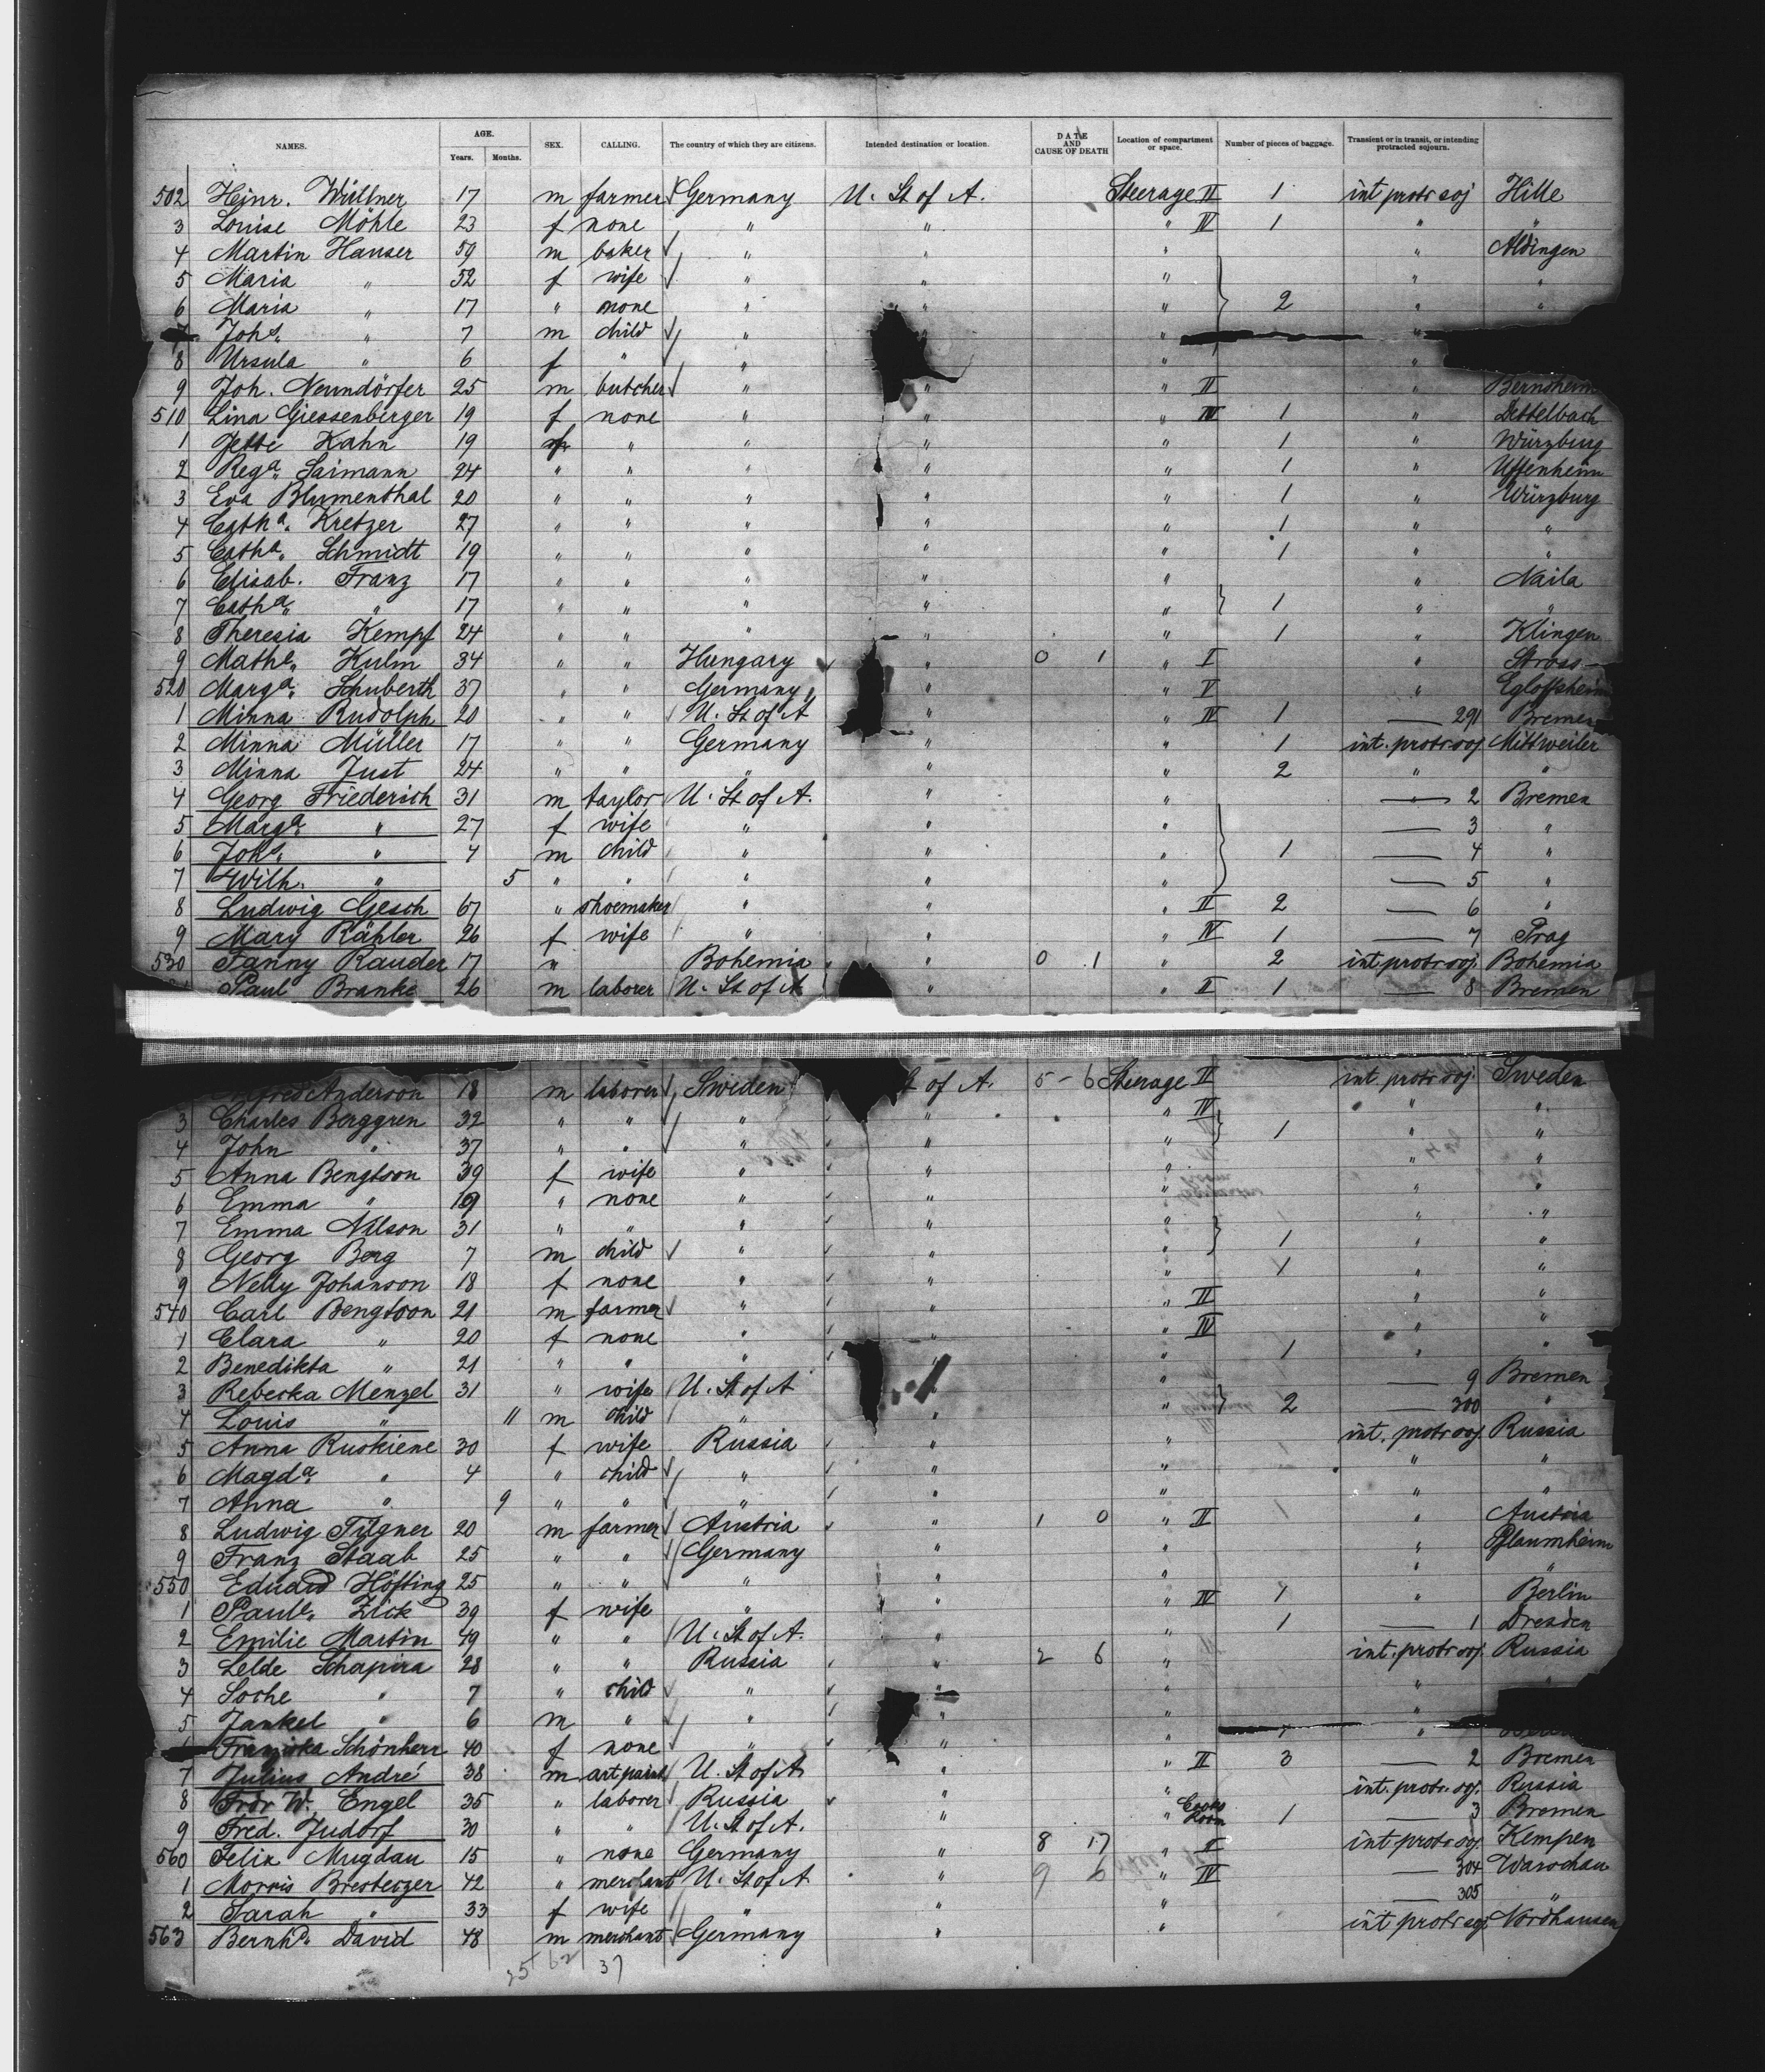 NAMES. AGE. Years. Months. SEX. CALLING. The country of which they are citizens. Intended destination or location. DATE AND CAUSE OF DEATH Location of compartment or space. Number of pieces of baggage. Transient or in transit, or intending protracted sojourn.
502 Heinr. Wüllner 17 m farmer Germany U. St of A. Steerage II 1 int protr soj Hille
3 Louise Möhle 23 f none " " " IV 1 " "
4 Martin Hauser 59 m baker " " " " Aldingen
5 Maria " 52 f wife " " " " "
6 Maria " 17 " none " " " 2 " "
7 Johs. " 7 m child " " "
8 Ursula " 6 f " " " " "
9 Joh. Neundörfer 25 m butcher " " " II " Bernsheim
510 Lina Giessenberger 19 f none " " " IV 1 " Dettelbach
1 Jette Kahn 19 f " " " " 1 " Würzburg
2 Rega. Saimann 24 " " " " " 1 " Uffenheim
3 Eva Blumenthal 20 " " " " " 1 " Würzburg
4 Catha. Kretzer 27 " " " " " 1 " "
5 Catha. Schmidt 19 " " " " " 1 " "
6 Elisab. Franz 17 " " " " " " Naila
7 Catha. " 17 " " " " " 1 " "
8 Theresia Kempf 24 " " " " " 1 " Klingen
9 Mathe. Kulm 34 " " Hungary " 0 1 " I " Stross
520 Marga. Schuberth 37 " " Germany " " V " Egloffsheim
1 Minna Rudolph 20 " " U. St of A " " IV 1 — 291 Bremen
2 Minna Müller 17 " " Germany " " 1 int. protr soj. Mittweiler
3 Minna Just 24 " " " " " 2 " "
4 Georg Friederich 31 m taylor U. St of A. " " — 2 Bremen
5 Marga. " 27 f wife " " " — 3 "
6 Johs. " 4 m child " " " 1 — 4 "
7 Wilh. " 5 " " " " " — 5 "
8 Ludwig Gesch 67 " shoemaker " " " II 2 — 6 "
9 Mary Rähler 26 f wife " " " IV 1 — 7 Prag
530 Fanny Rauder 17 " Bohemia " 0 1 " 2 int protr soj. Bohemia
Paul Branke 26 m laborer U. St of A " " II 1 — 8 Bremen
Alfred Anderson 18 m laborer Sweden St of A. 5 - 6 Steerage II int protr soj. Sweden
3 Charles Berggren 32 " " " " " IV " "
4 John " 37 " " " " " 1 " "
5 Anna Bengtson 39 f wife " " " " "
6 Emma " 19 " none " " " " "
7 Emma Nilson 31 " " " " " " "
8 Georg Berg 7 m child " " " 1 " "
9 Nelly Johanson 18 f none " " " 1 " "
540 Carl Bengtson 21 m farmer " " " II " "
1 Clara " 20 f none " " " IV " "
2 Benedikta " 21 " " " " " 1 " "
3 Rebecka Menzel 31 " wife U. St of A " " — 9 Bremen
4 Louis " 11 m child " " " 2 — 300 "
5 Anna Ruskiene 30 f wife Russia " " int. protr soj. Russia
6 Magda. " 4 " child " " " " "
7 Anna " 9 " " " " " " "
8 Ludwig Tilgner 20 m farmer Austria " 1 0 " II " Austria
9 Franz Staab 25 " " Germany " " " Pflaumheim
550 Eduard Höfting 25 " " " " " " "
1 Paule. Zick 39 f wife " " " IV 1 " Berlin
2 Emilie Martin 49 " " U. St of A. " " 1 — 1 Dresden
3 Lelde Schapira 28 " " Russia " 2 6 " int. protr soj. Russia
4 Soche " 7 " child " " " "
5 Jankel " 6 m " " " " "
Franziska Schönherr 40 f none " " " "
7 Julius André 38 m art paint U. St of A " " II 3 — 2 Bremen
8 Frdr W. Engel 35 " laborer Russia " " int. protr. soj. Russia
9 Fred. Judorf 30 " " U. St of A. " " Room 1 — 3 Bremen
560 Felix Mugdau 15 " none Germany " 8 17 " II int protr soj Kempen
1 Morris Bresterzer 42 " merchant U. St of A " 9 6 " IV — 304 Warschau
2 Sarah " 33 f wife " " " — 305 "
563 Bernhd. David 48 m merchant Germany " " int protr soj. Nordhausen
25 62 37